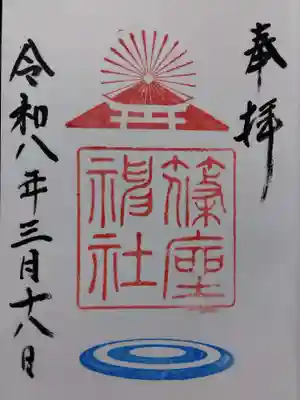 奉拝
篠座
神社
令和八年三月十八日